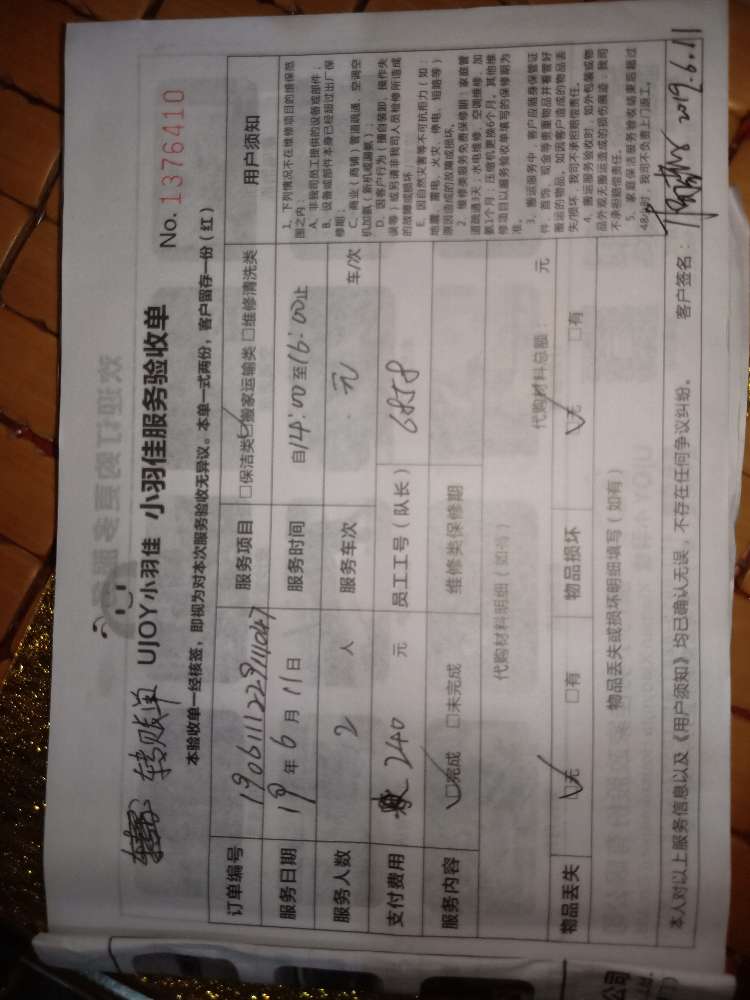 转账单
UJOY小羽佳 小羽佳服务验收单
No. 1376410
本验收单一经核签，即视为对本次服务验收无异议。本单一式两份，客户留存一份（红）
订单编号 190611122911047 服务项目 □保洁类☑搬家运输类□维修清洗类
服务日期 19年6月11日 服务时间 自14:00至16:00止
服务人数 2人 服务车次 元 车/次
支付费用 240元 员工工号（队长） 6858
服务内容 ☑完成 □未完成 维修类保修期
代购材料明细（如有）
代购材料总额： 元
物品丢失 ☑无 □有 物品损坏 ☑无 □有
物品丢失或损坏明细填写（如有）
用户须知
1、下列情况不在维修项目的维保范
围之内：
A、非我司员工提供的设备或部件；
B、设备或部件本身已经超过出厂保
修期；
C、商业（商铺）管道疏通、空调空
机加氨（新机或漏氨）；
D、因客户行为（擅自装卸、操作失
误等）或另请非我司人员检修所造成
的故障或损坏；
E、因自然灾害等不可抗拒力（如：
地震、雷电、火灾、停电、短路等）
原因造成的故障或损坏。
2、维修类服务免费保修期：家庭管
道疏通3天；水电维修、空调维修、加
氨1个月，压缩机更换6个月。其他维
修项目以服务验收单填写的保修期为
准。
3、搬运服务中，客户应随身保管证
件、首饰、现金等贵重物品并看管好
搬运的物品，如因客户造成的物品丢
失/损坏，我司不承担赔偿责任。
4、搬运服务验收时，如外包装或物
品外观无搬运造成的损伤痕迹，我司
不承担赔偿责任。
5、家庭保洁服务验收结束后超过
48小时，我司不负责上门返工。
本人对以上服务信息以及《用户须知》均已确认无误，不存在任何争议纠纷。 客户签名： 2019.6.11
公司